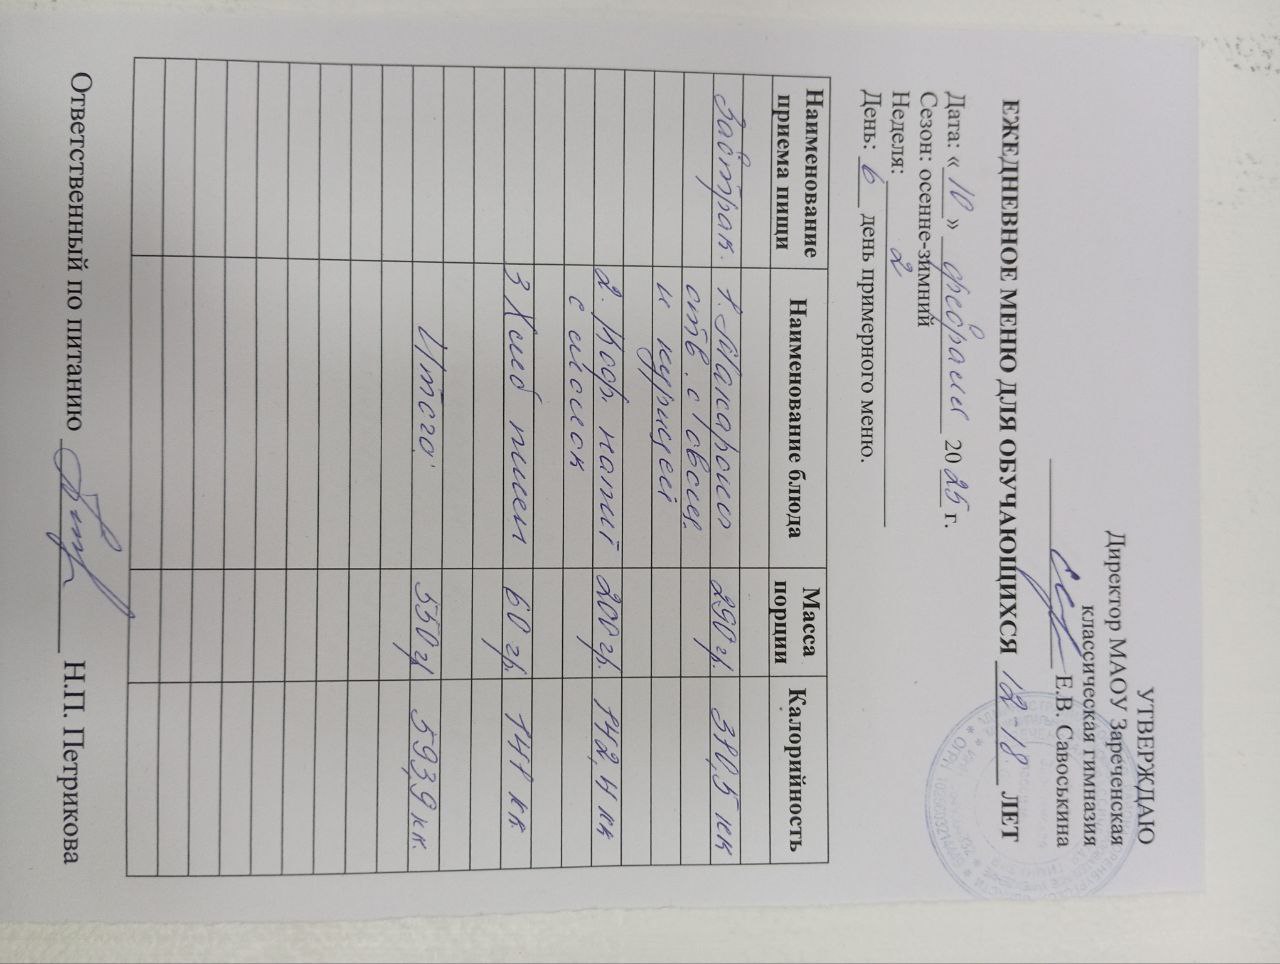 УТВЕРЖДАЮ
Директор МАОУ Зареченская
классическая гимназия
Е.В. Савоськина
ЕЖЕДНЕВНОЕ МЕНЮ ДЛЯ ОБУЧАЮЩИХСЯ 12-18 ЛЕТ
Дата: «10» февраля 2025 г.
Сезон: осенне-зимний
Неделя: 2
День: 6 день примерного меню.
Наименование приема пищи Наименование блюда Масса порции Калорийность
Завтрак. 1. Макароны 290 гр. 310,5 кк
отв. с овощ.
и курицей
2. Коф. напит 200 гр. 142,4 кк
с молок
3 Хлеб пшен 60 гр. 141 кк
Итого: 550 гр 593,9 кк.
Ответственный по питанию Н.П. Петрикова